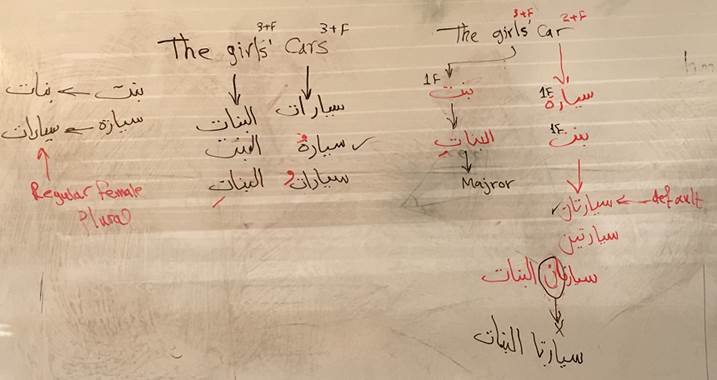 3+F 3+F
The girls' Cars
3+F 2+F
The girls' Car
بنت ← بنات
سيارة ← سيارات
Regular female
plural
البنات سيارات
البنت سيارةُ ✓
البناتِ سياراتُ
1F
بنت
البناتِ
Majror
1F سيارة
1F بنت
✓ سيارتان ← default
سيارتين
سيارتان البنات
سيارتا البنات